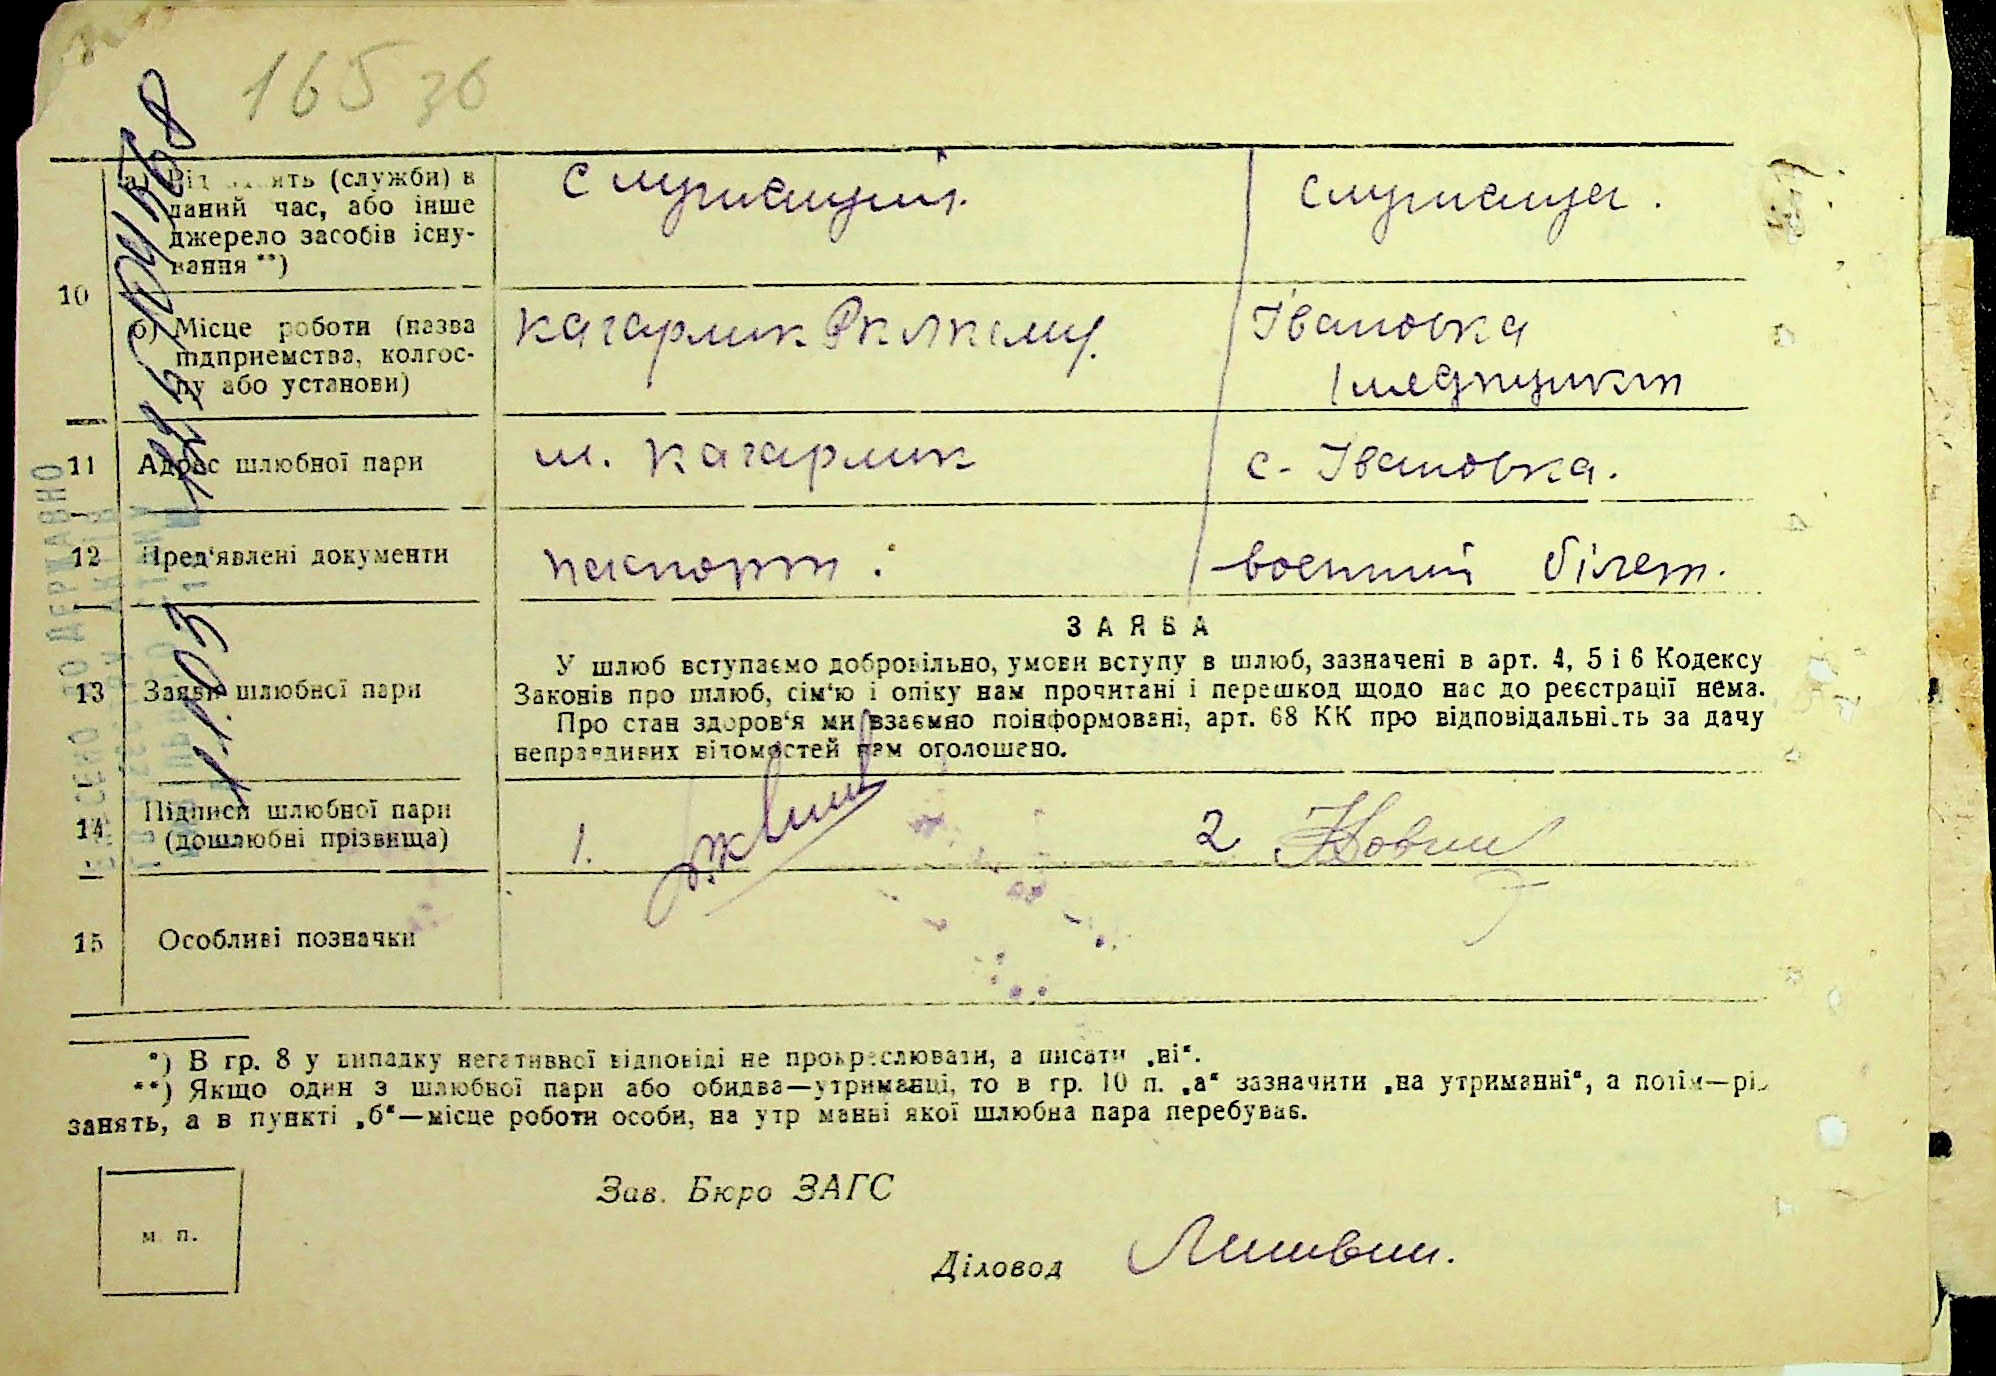 165 зв
10
а) Рід занять (служби) в
даний час, або інше
джерело засобів існу-
вання **)
служащий.
служаща.
б) Місце роботи (назва
підприємства, колгос-
пу або установи)
кагарлик
Івановка
медпункт
11
Адрес шлюбної пари
м. кагарлик
с. Івановка.
12
Пред'явлені документи
паспорт.
военний білет.
13
Заяви шлюбної пари
ЗАЯВА
У шлюб вступаємо добровільно, умови вступу в шлюб, зазначені в арт. 4, 5 і 6 Кодексу
Законів про шлюб, сім'ю і опіку нам прочитані і перешкод щодо нас до реєстрації нема.
Про стан здоров'я ми взаємно поінформовані, арт. 68 КК про відповідальність за дачу
неправдивих відомостей нам оголошено.
14
Підписи шлюбної пари
(дошлюбні прізвища)
1.
2
15
Особливі позначки
*) В гр. 8 у випадку негативної відповіді не прокреслювати, а писати „ні“.
**) Якщо один з шлюбної пари або обидва—утриманці, то в гр. 10 п. „а“ зазначити „на утриманні“, а потім—рід
занять, а в пункті „б“—місце роботи особи, на утриманні якої шлюбна пара перебуває.
м. п.
Зав. Бюро ЗАГС
Діловод
Литвин.